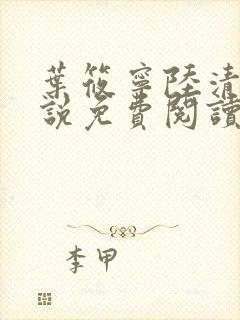 葉筱寧陸清
說免費閱讀
李甲